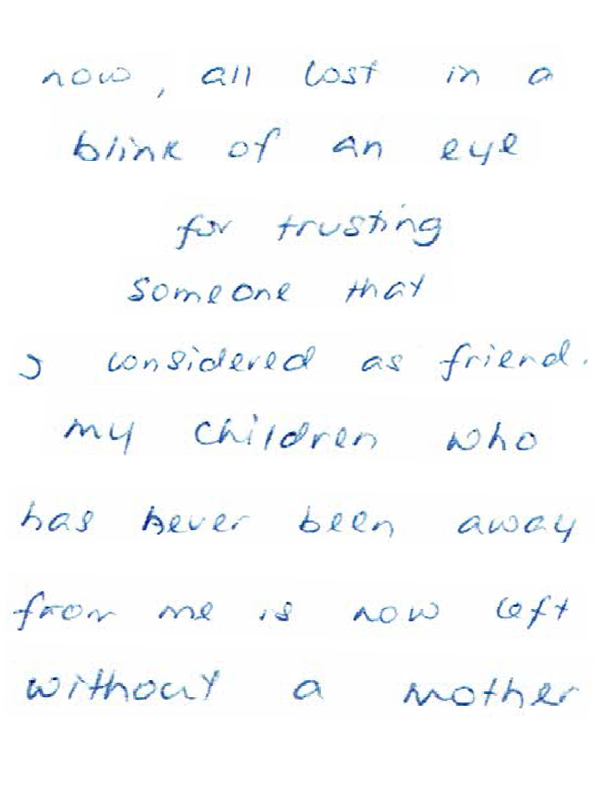 now, all lost in a
blink of an eye
for trusting
someone that
I considered as friend.
my children who
has never been away
from me is now left
without a mother